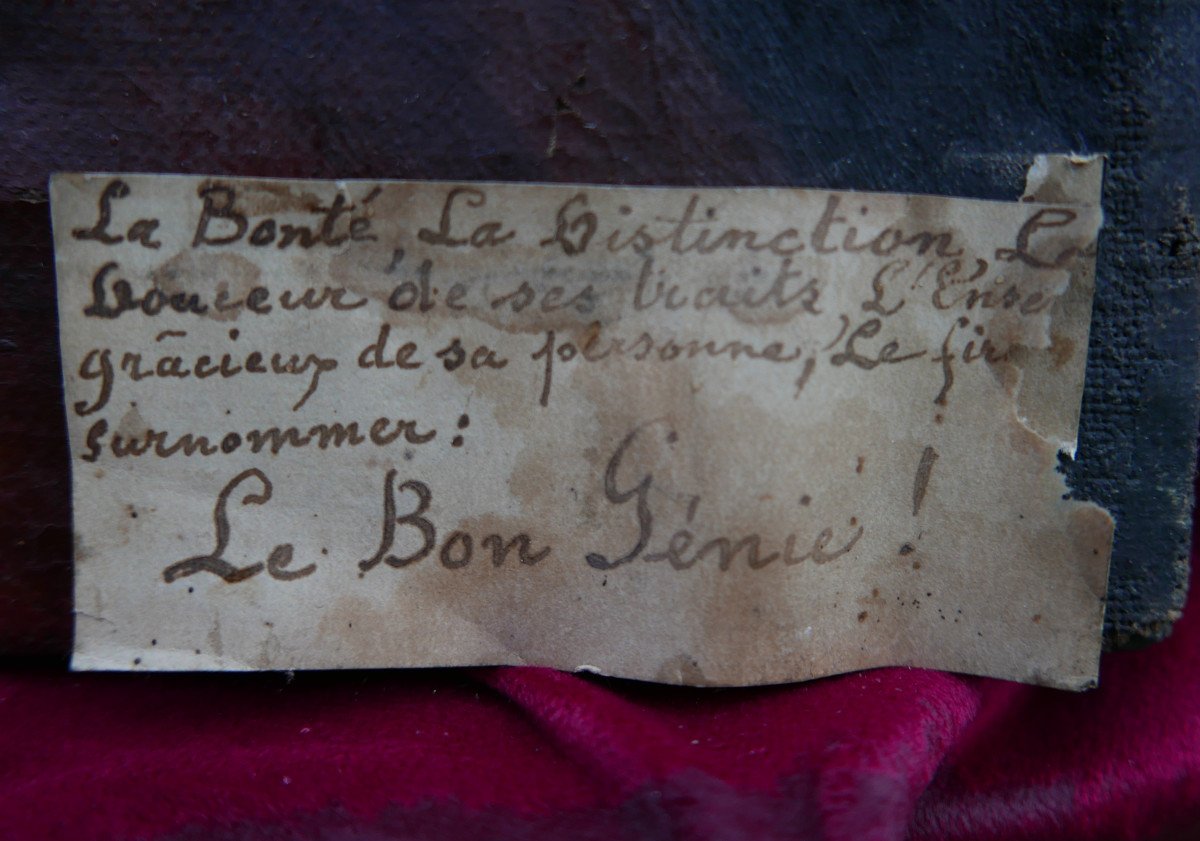 La Bonté, La Distinction, La
Douceur de ses traits, L'Ense
grâcieux de sa personne, Le fire
surnommer:
Le Bon Génie!